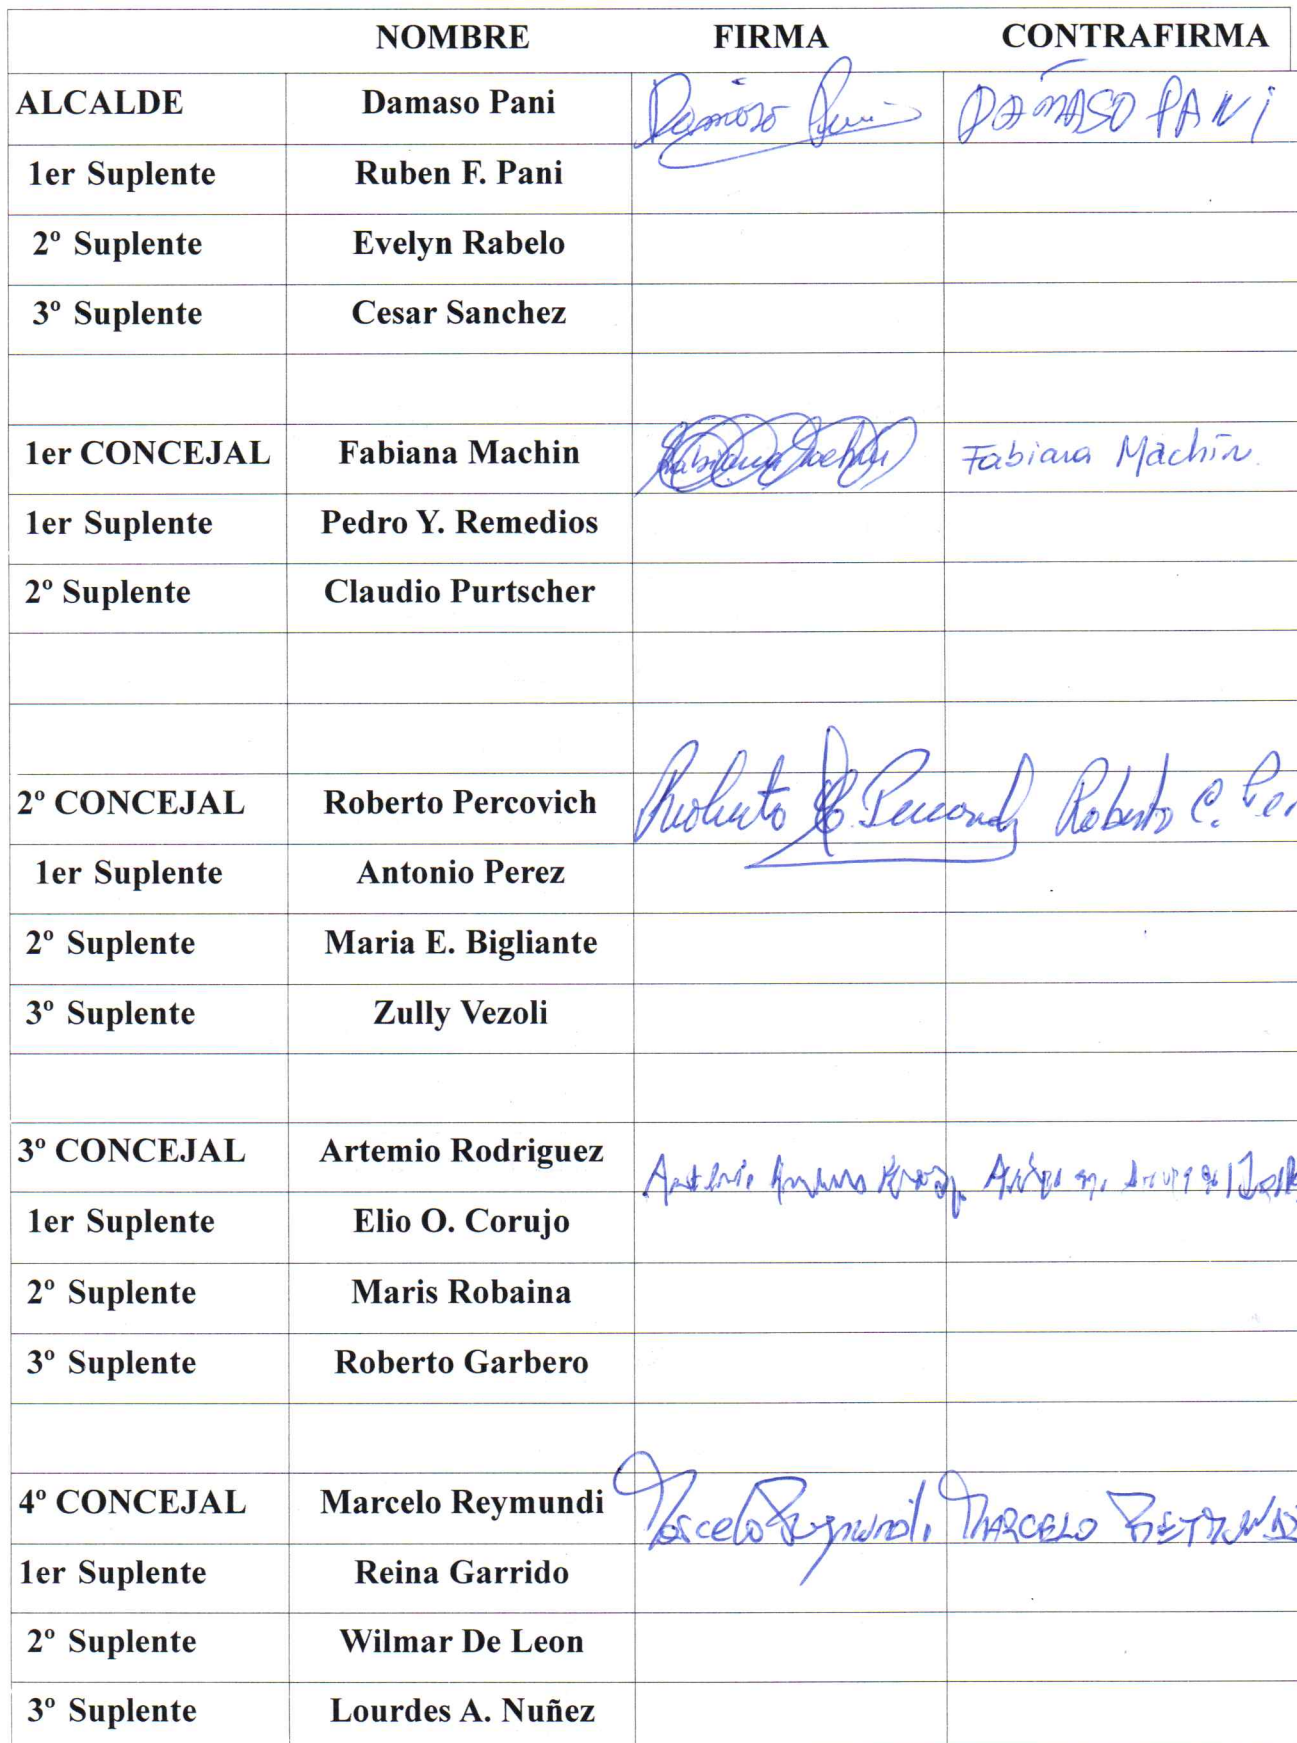 NOMBRE FIRMA CONTRAFIRMA
ALCALDE Damaso Pani Damaso Pani DAMASO PANI
1er Suplente Ruben F. Pani
2º Suplente Evelyn Rabelo
3º Suplente Cesar Sanchez
1er CONCEJAL Fabiana Machin Fabiana Machin Fabiana Machín.
1er Suplente Pedro Y. Remedios
2º Suplente Claudio Purtscher
2º CONCEJAL Roberto Percovich Roberto C. Percovich Roberto C. Per
1er Suplente Antonio Perez
2º Suplente Maria E. Bigliante
3º Suplente Zully Vezoli
3º CONCEJAL Artemio Rodriguez
1er Suplente Elio O. Corujo
2º Suplente Maris Robaina
3º Suplente Roberto Garbero
4º CONCEJAL Marcelo Reymundi Marcelo Reymundi MARCELO REYMUNDI
1er Suplente Reina Garrido
2º Suplente Wilmar De Leon
3º Suplente Lourdes A. Nuñez